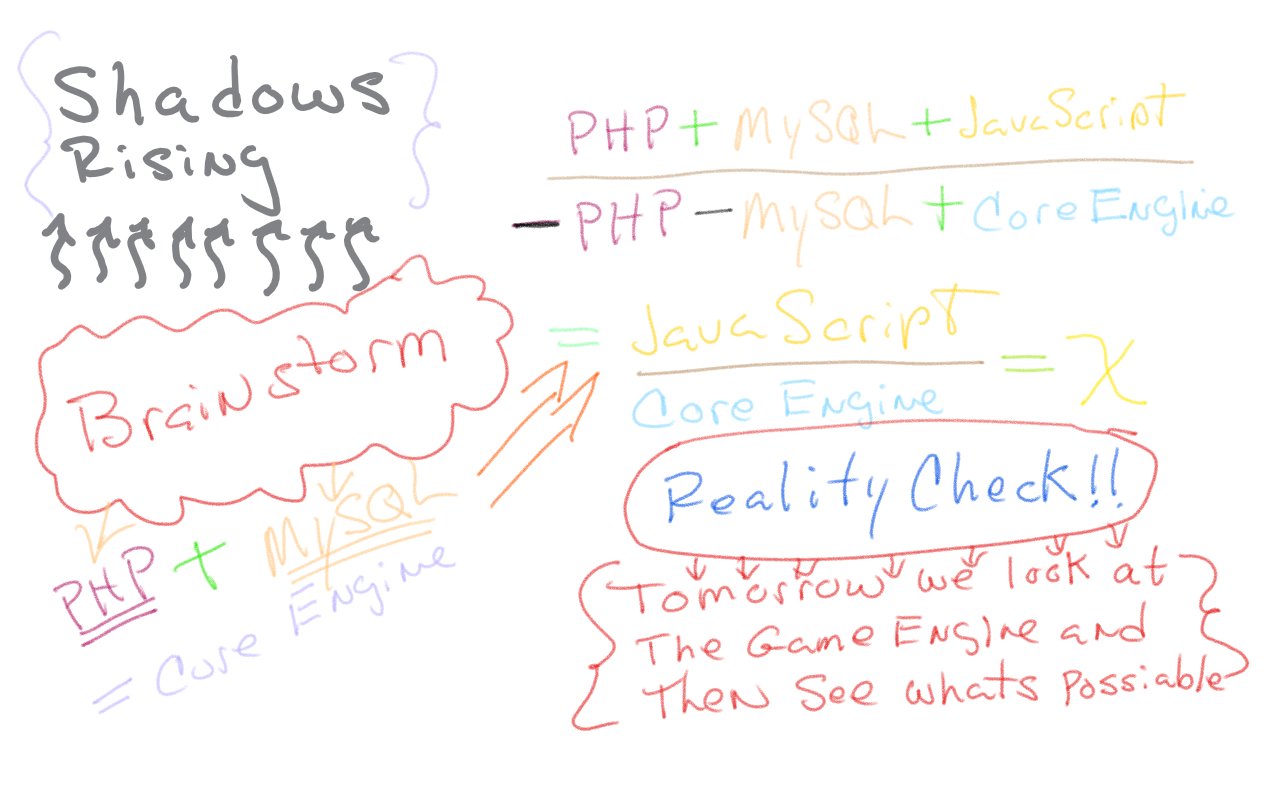 Shadows
Rising
Brainstorm
PHP + MySQL
= Core Engine
PHP + MySQL + JavaScript
- PHP - MySQL + Core Engine
= JavaScript = X
Core Engine
Reality Check!!
Tomorrow we look at
The Game Engine and
Then See whats Possiable